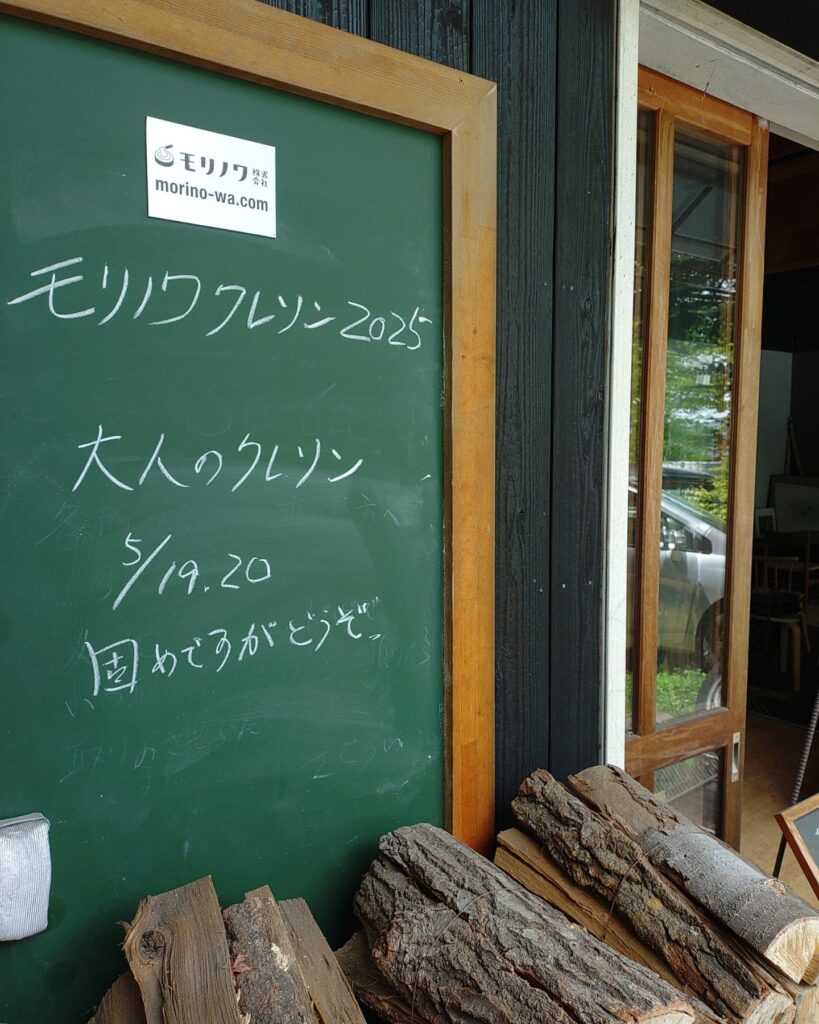 モリノワ 株式会社
morino-wa.com
モリノワクレソン2025
大人のクレソン
5/19.20
固めですがどうぞ